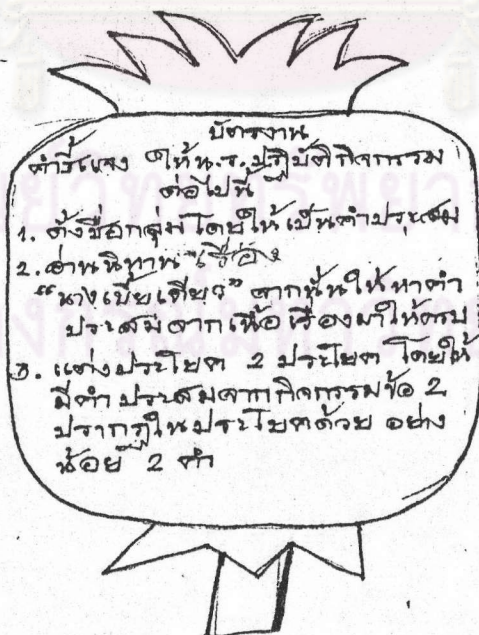 บัตรงาน
คำชี้แจง ให้น.ร.ปฏิบัติกิจกรรม
ต่อไปนี้
1. ตั้งชื่อกลุ่มโดยให้เป็นคำประสม
2. อ่านนิทาน เรื่อง
"นางเบี้ยเดียว" จากนั้นให้หาคำ
ประสมจากเนื้อเรื่องมาให้ครบ
3. แต่งประโยค 2 ประโยค โดยให้
มีคำประสมจากกิจกรรมข้อ 2
ปรากฏในประโยคด้วย อย่าง
น้อย 2 คำ